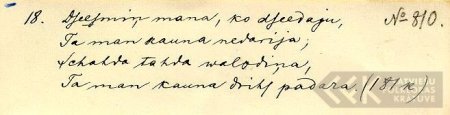 18. Dseesmiņ mana, ko dseedaju, № 810.
Ta man kauna nedarija;
Schahda tahda walodiņa,
Ta man kauna drihs padara. (181 k)
LATVIEŠU
FOLKLORAS
KRĀTUVE